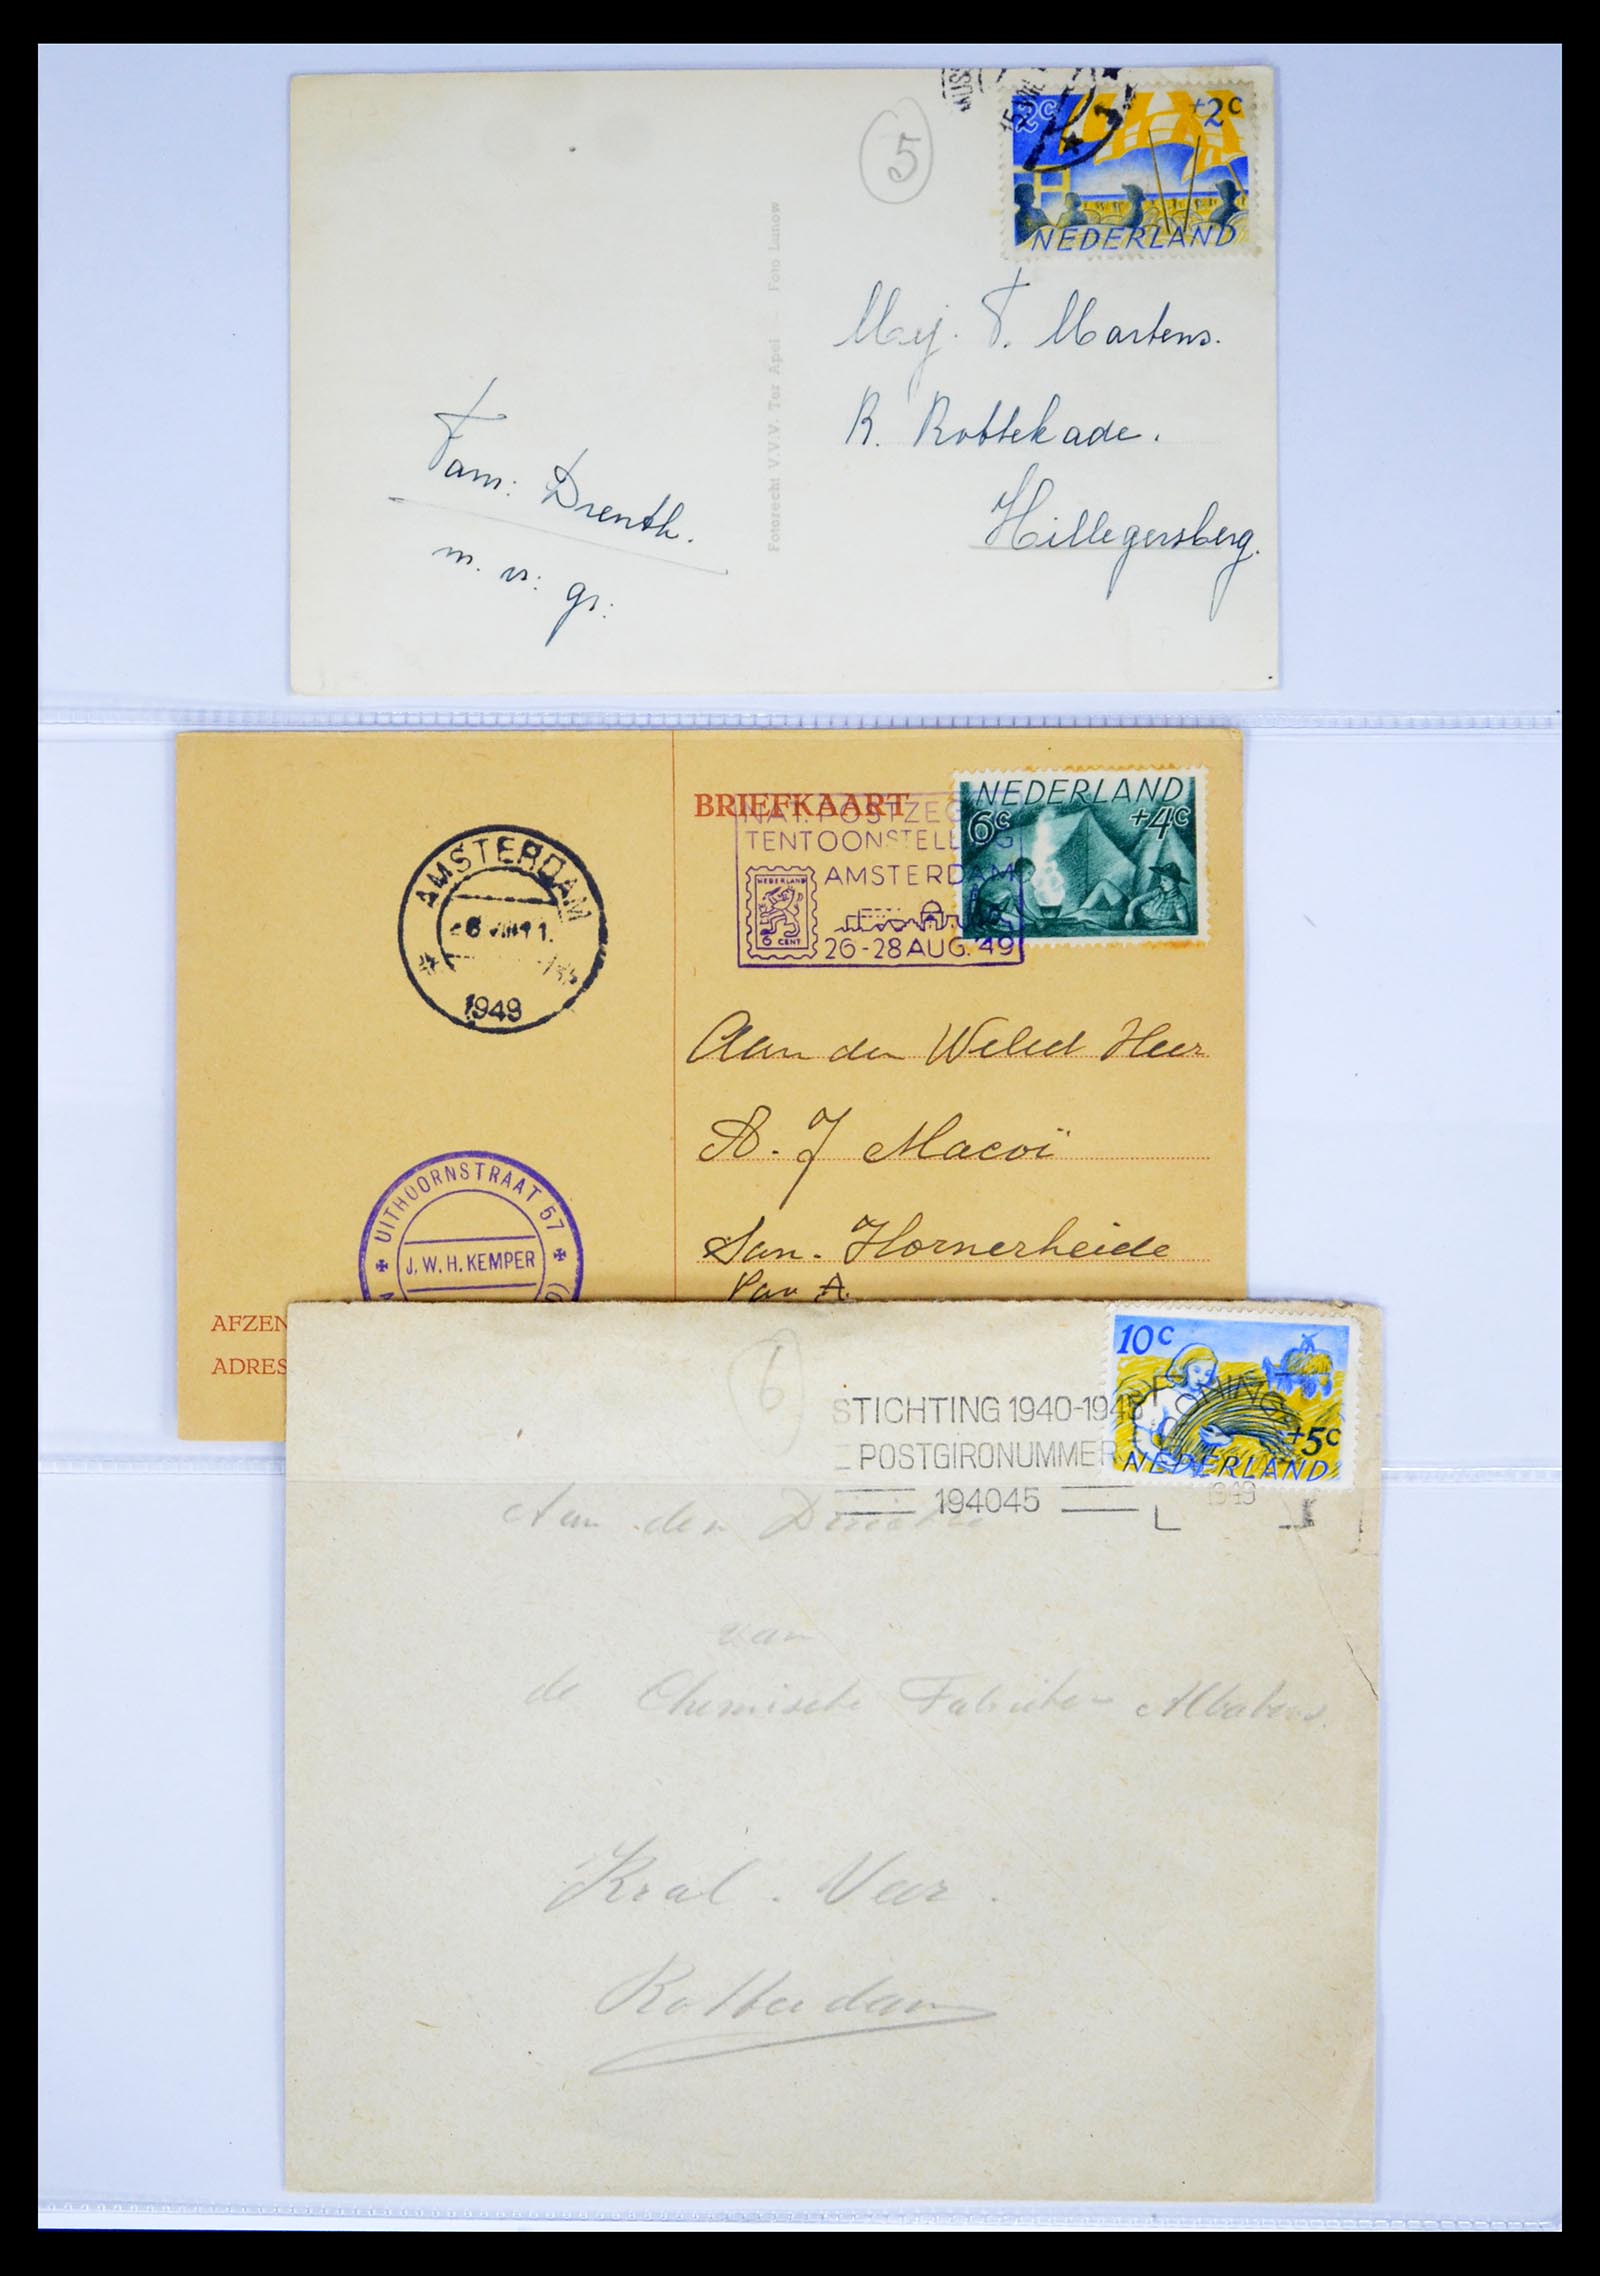 5
2c +2c
NEDERLAND
Mej. T. Martens.
R. Rottekade.
Hillegersberg.
Fam: Drenth.
m. v: gr:
Fotorecht V.V.V. Ter Apel — Foto Lunow
BRIEFKAART
NEDERLAND
6c +4c
NAT. POSTZEG
TENTOONSTELLING
AMSTERDAM
NEDERLAND
6 CENT
26-28 AUG. '49
AMSTERDAM
1949
Aan den Weled Heer
A. J Macoï
San. Hornerheide
Pav A.
UITHOORNSTRAAT 57
J. W. H. KEMPER
AFZEN
ADRES
6
10c
+5c
NEDERLAND
STICHTING 1940-1945
POSTGIRONUMMER
194045
1949
Aan den Directie
van
de Chemische Fabrieken Albatros.
Kral. Veer.
Rotterdam